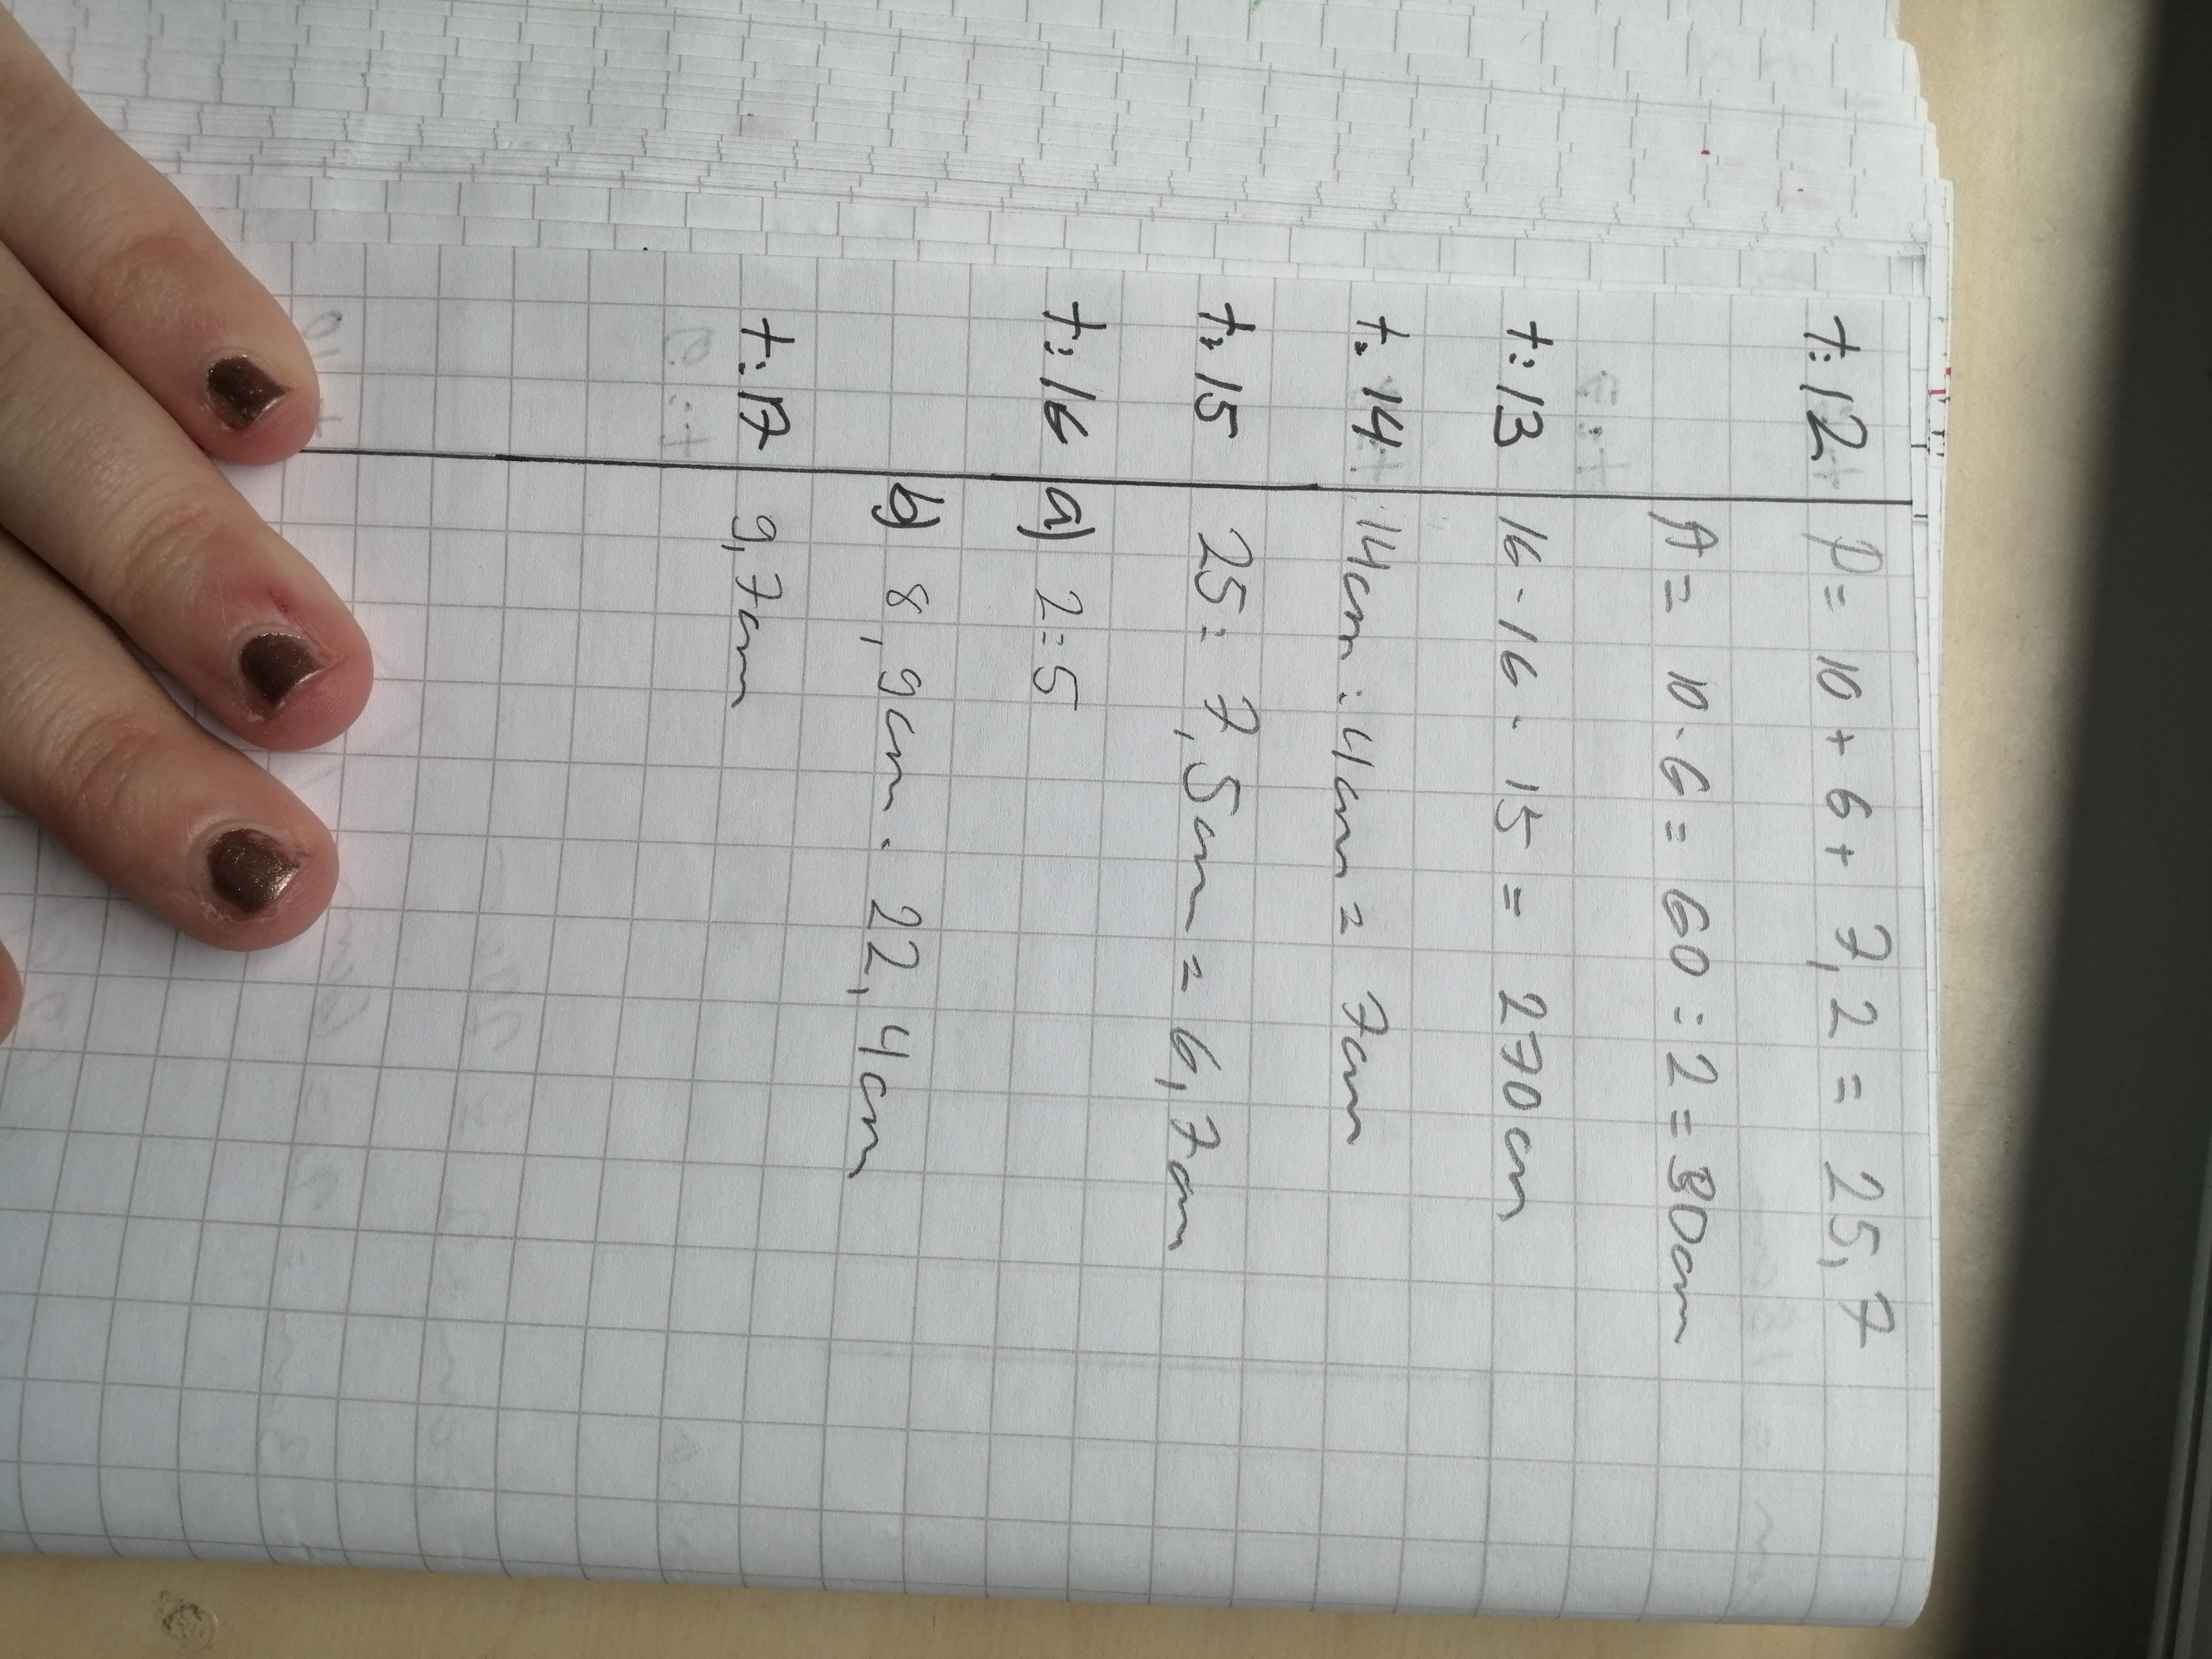 t:12 P = 10 + 6 + 7,2 = 25,7
A = 10 · 6 = 60 : 2 = 30cm
t:13 16 · 16 · 15 = 270cm
t:14 14cm : 4cm = 7cm
t:15 25 : 7,5cm = 6,7cm
t:16 a) 2:5
b) 8,9cm · 22,4cm
t:17 9,7cm